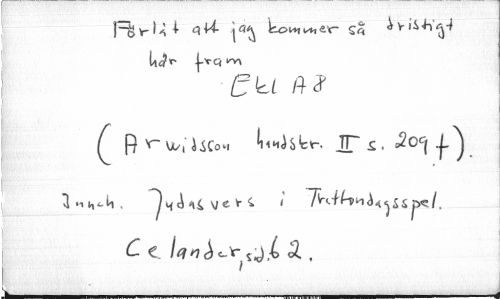 Förlåt att jag kommer så dristigt
här fram
Ekl A8
(Arwidsson handskr. II s. 209 f).
Inneh. Judasvers i Trettondagsspel.
Celander, sid. 62.